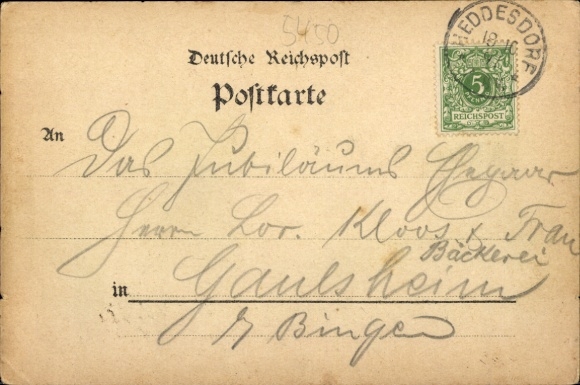 5450
HEDDESDORF
Deutsche Reichspost
Postkarte
5
REICHSPOST
An
Das Jubiläums Ehepaar
Herrn Lor. Kloos & Frau
Bäckerei
in Gaulsheim
b/ Bingen